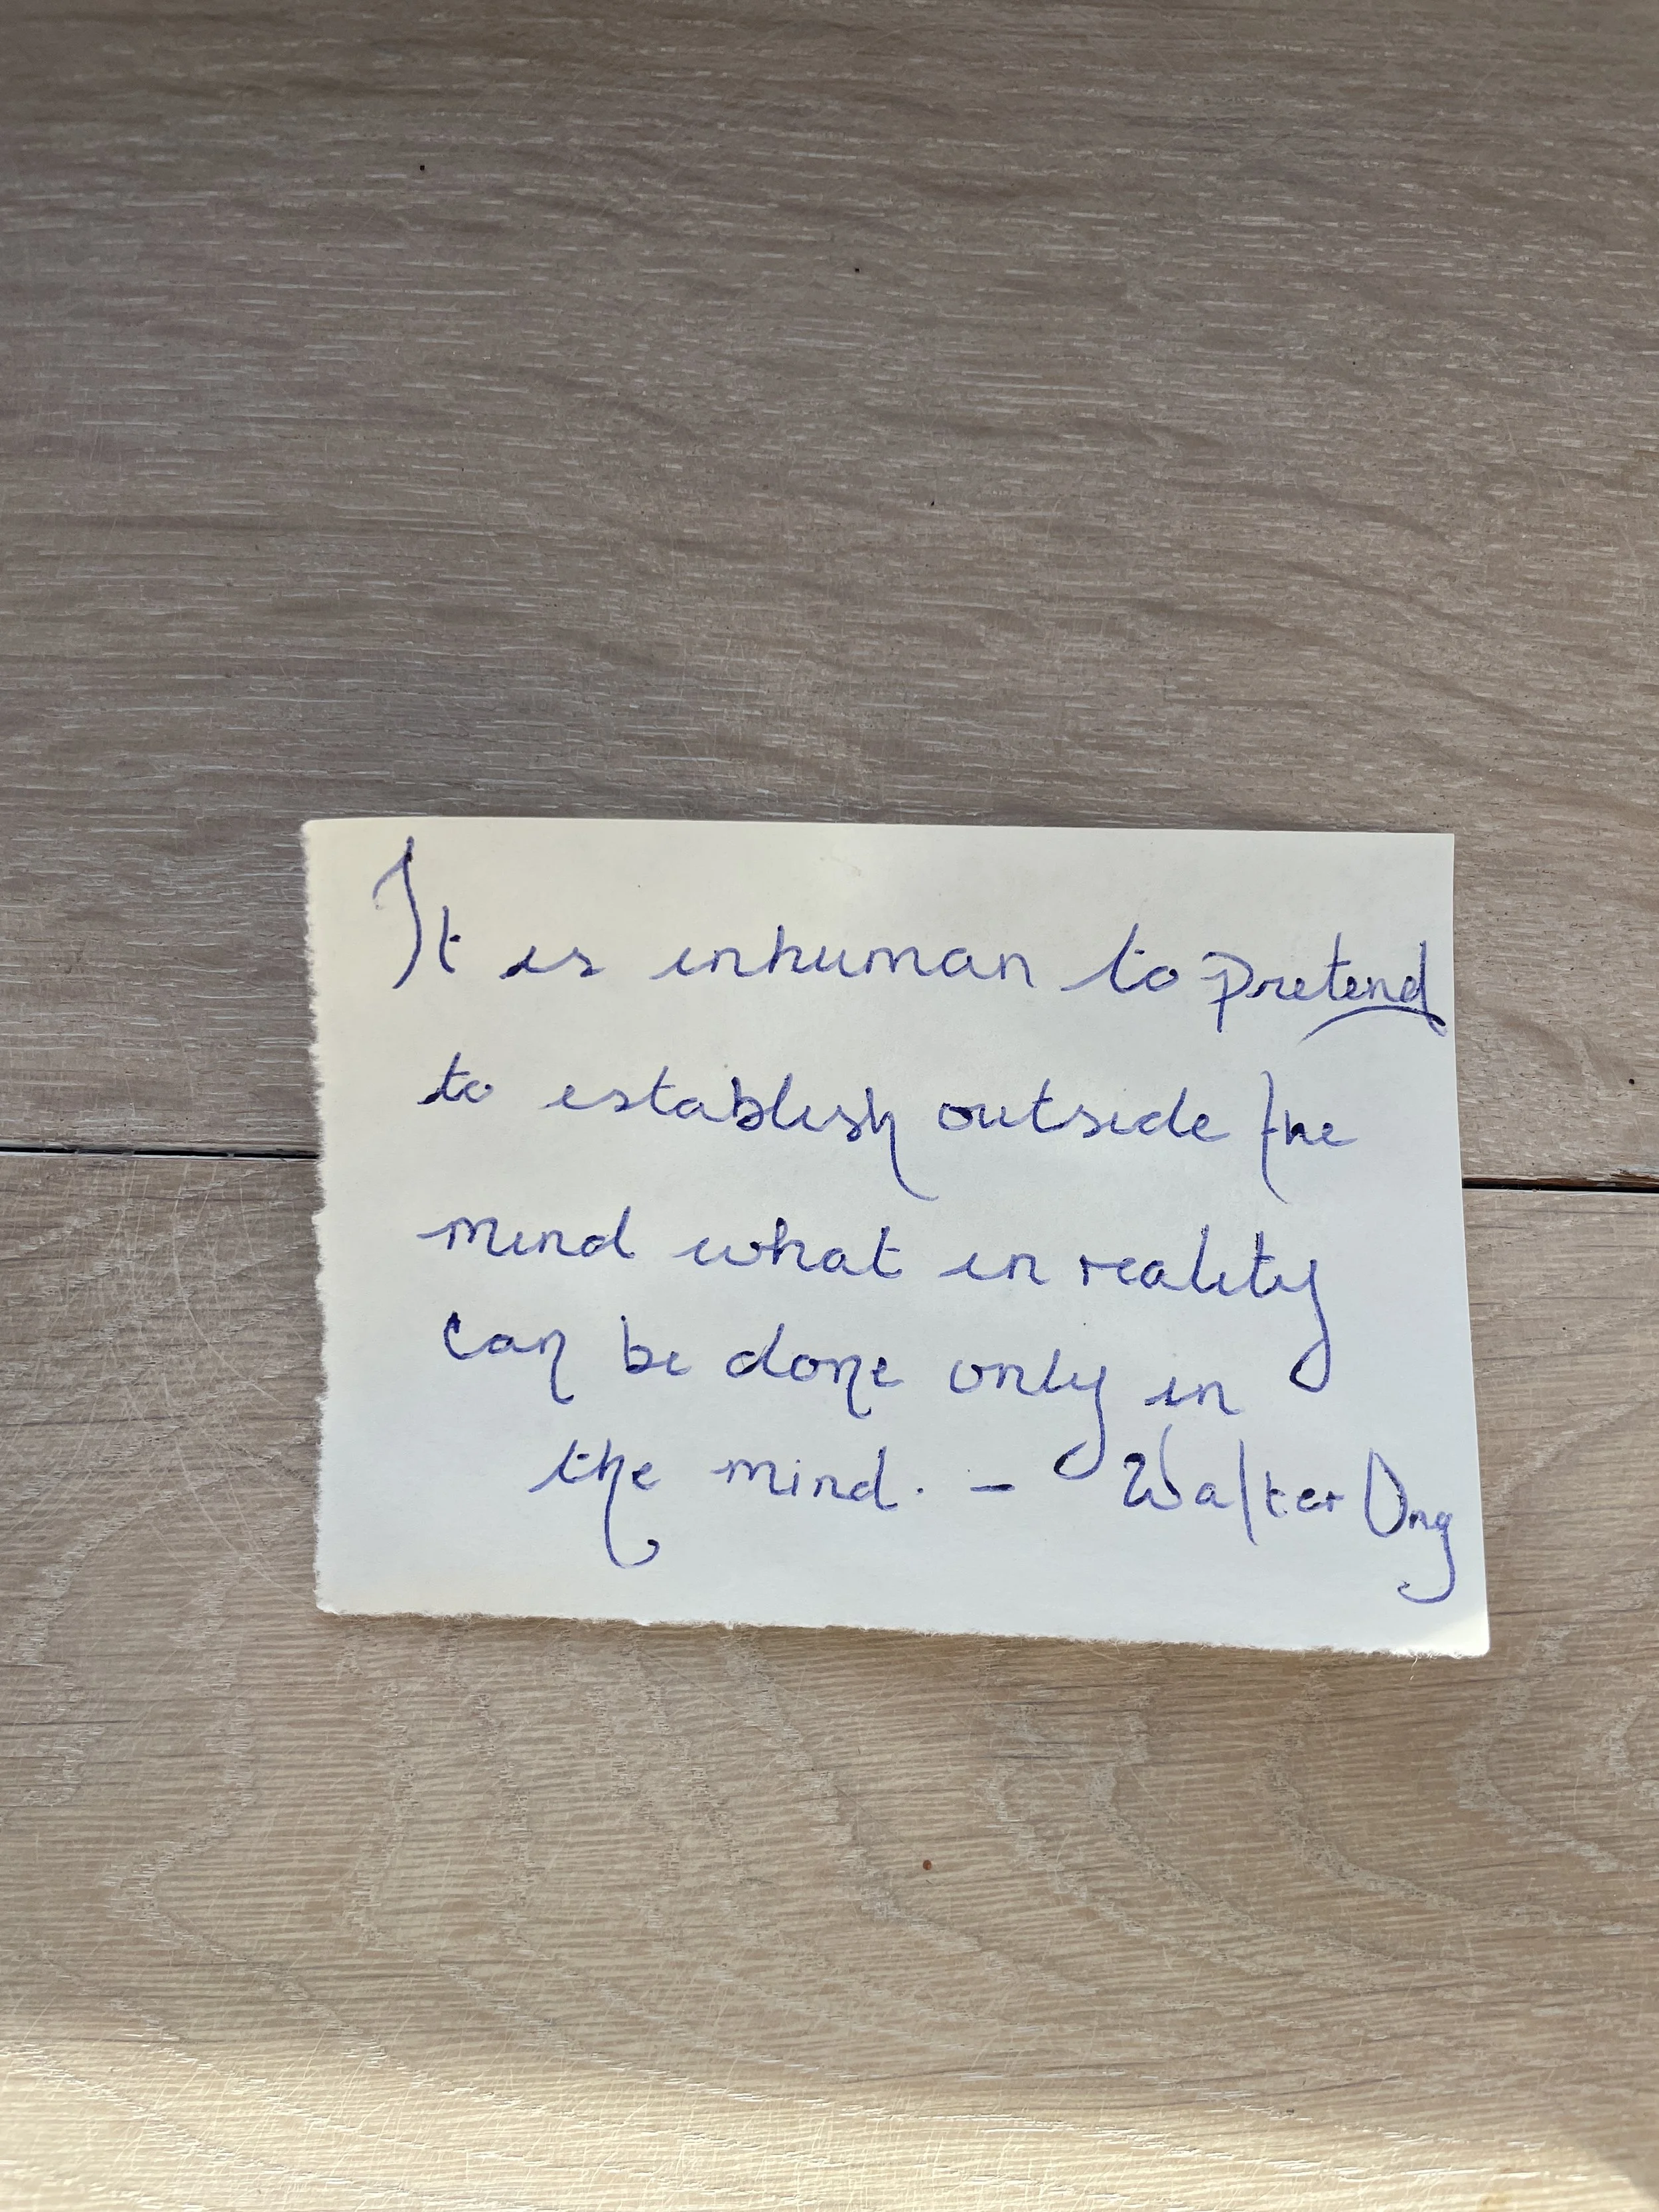 It is inhuman to pretend
to establish outside the
mind what in reality
can be done only in
the mind. - Walter Ong